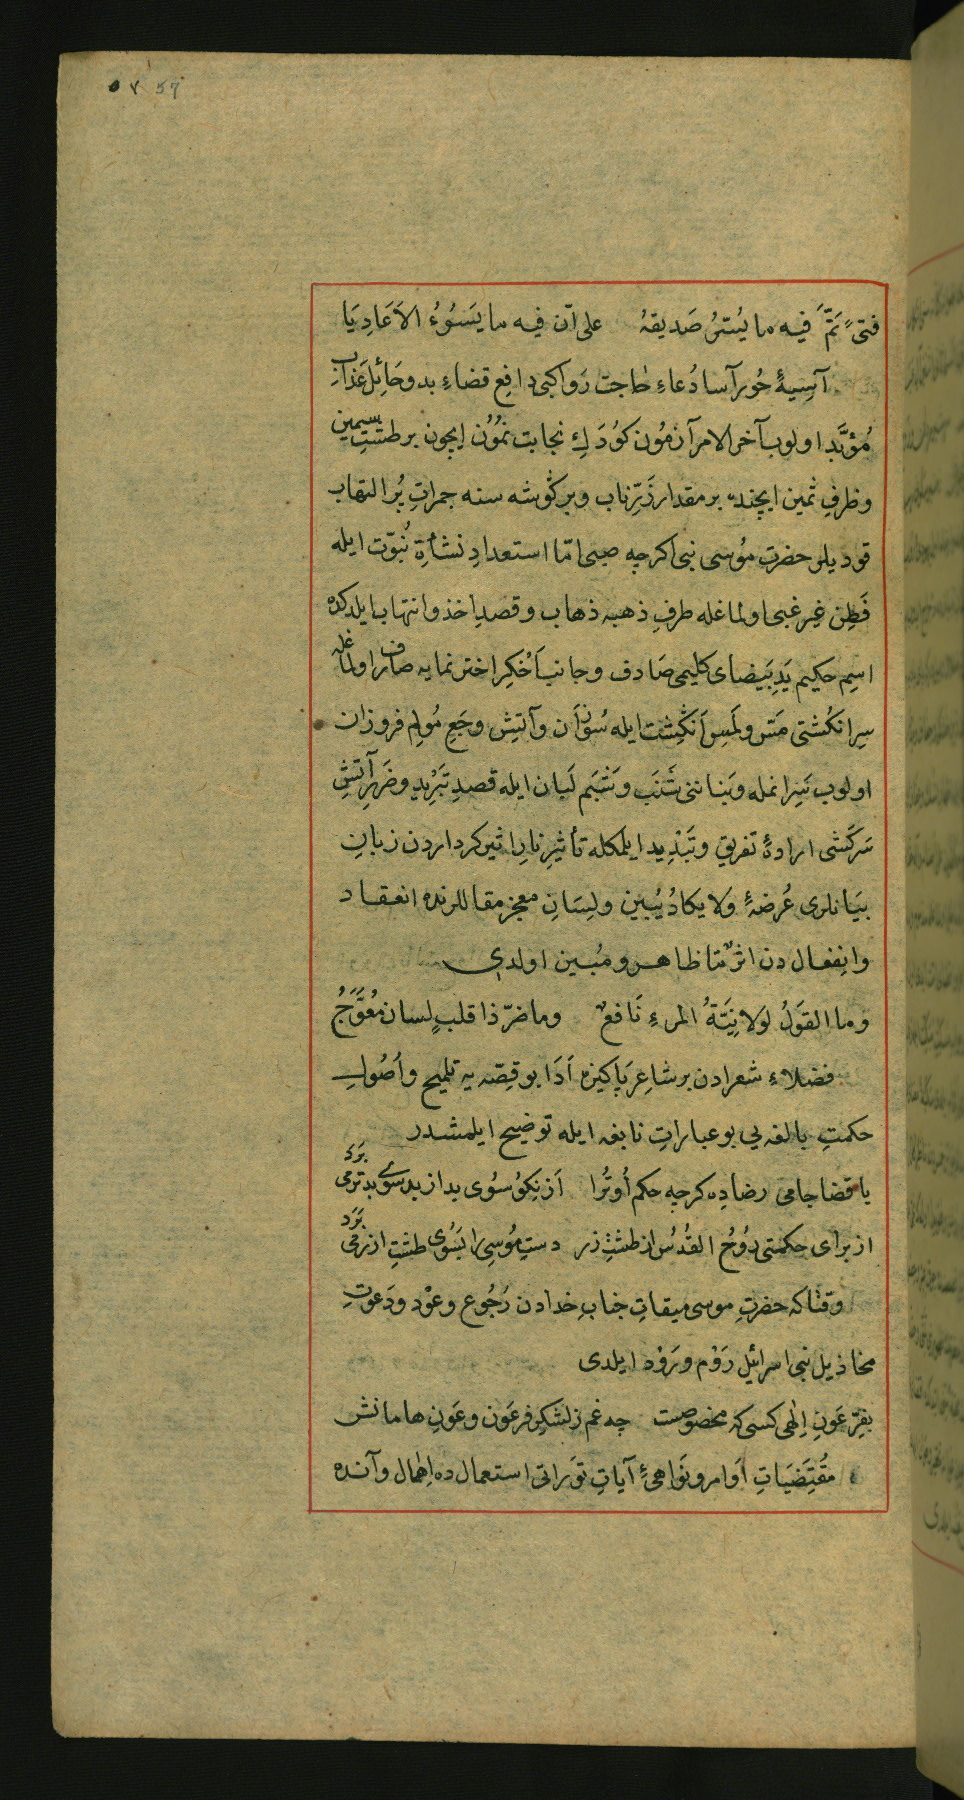 ٥٧ 57
فتىً تَمَّ فيه ما يُسرُّ صَديقهُ على انّ فيه ما يَسُؤُ الاَعَادِيَا
آسِيهٔ حُور آسا دُعاءِ حاجت رَوا كبى دافعِ قضاءِ بد وحَائلِ عَذابِ
مُؤبَّد اولوب آخر الامر آزمُون كوُدَكِ نجابت نمُوُن ايچون بر طشتِ سيمين
وظرفِ ثمين ايچنده بر مقدار زَرِّناب وبر كوشه سنه جمراتِ پُر التهاب
قوديلر حضرتِ مُوسى نبى اكرچه صبى امّا استعدادِ نشأةِ نُبوّت ايله
فَطِن غير غبى اولماغله طرفِ ذهبه ذهاب وقصدِ اخذ وانتهاب ايلدكده
اسمِ حكيم يَدِ بَيضاى كليمى صَادف وجانبِ اَخْكرِ اختر نمايه صارف اولماغله
سرِ انكُشتى مَسّ ولَمسِ اَنكِشت ايله سُوزان وآتش وجَعِ مُولِم فروزان
اولوب
سَركَشى ارادهٔ تفريق وتَبْذِيد ايلمكله تأثيرِ نارِ اثير كرداردن زبانِ
بيَانلرى عُرضهٔ ولا يكادُ يُبين ولِسَانِ معجز مقاللرنده انعقاد
وانِفعال دن اثرٌ مّا ظاهر ومُبين اولدى
وما القَولُ لولا نِيَّةُ المرءِ نَافعٌ وما ضرّ ذا قلبٍ لسان مُعَوَّجُ
فضلاءِ شعرادن بر شاعرِ پاكيزه اَدَا بو قِصّه يه تلميح واُصُولِ
حكمتِ بالغه يى بو عباراتِ نابغه ايله توضيح ايلمشدر
يا قضا جامى رضا ده كرچه حكم اُو تُرا اَز نِكوُ سُوى بد از بد سُوى بدتر مى بَرَد
از براى حكمتى رُوحُ القُدُس از طشتِ زر دستِ مُوسى را بَسُوى طشتِ ازر مى بَرَد
وقتاكه حضرتِ موسى ميقاتِ جنابِ خدادن رُجُوع وعَوْد ودَعوتِ
مخاذيلِ بنى اسرائيل رَوْم ورَوْد ايلدى
بفرِّ عَونِ اِلٰهى كسى كه مخصوصست چه غم ز لشكرِ فرعَون وعَونِ هامانش
مُقتَضَيَاتِ اَوَامر ونَواهىٔ آياتِ تَوراتى استعمال ده اِهمال وآنده